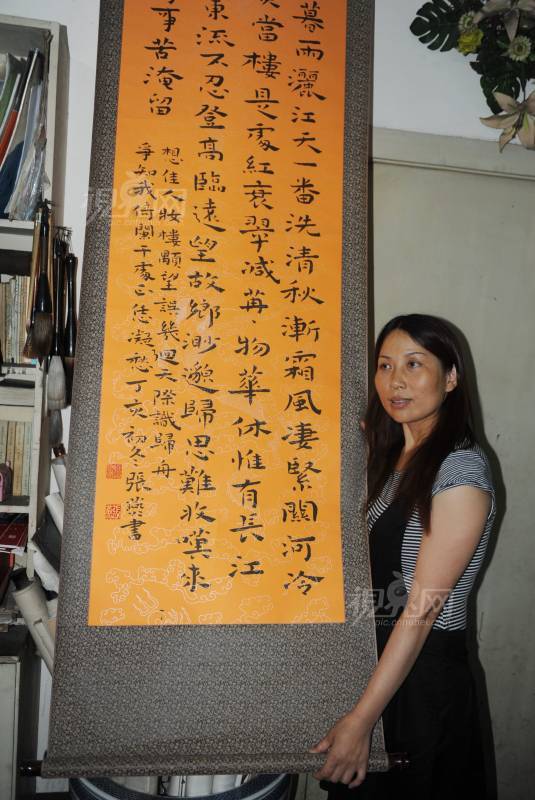 暮雨灑江天一番洗清秋漸霜風凄緊關河冷
當樓是處紅衰翠減苒丶物華休惟有長江
東流不忍登高臨遠望故鄉渺邈歸思難收嘆來
事苦淹留
想佳人妝樓顒望誤幾迴天際識歸舟
爭知我倚闌干處正恁凝愁丁亥初冬張燕書